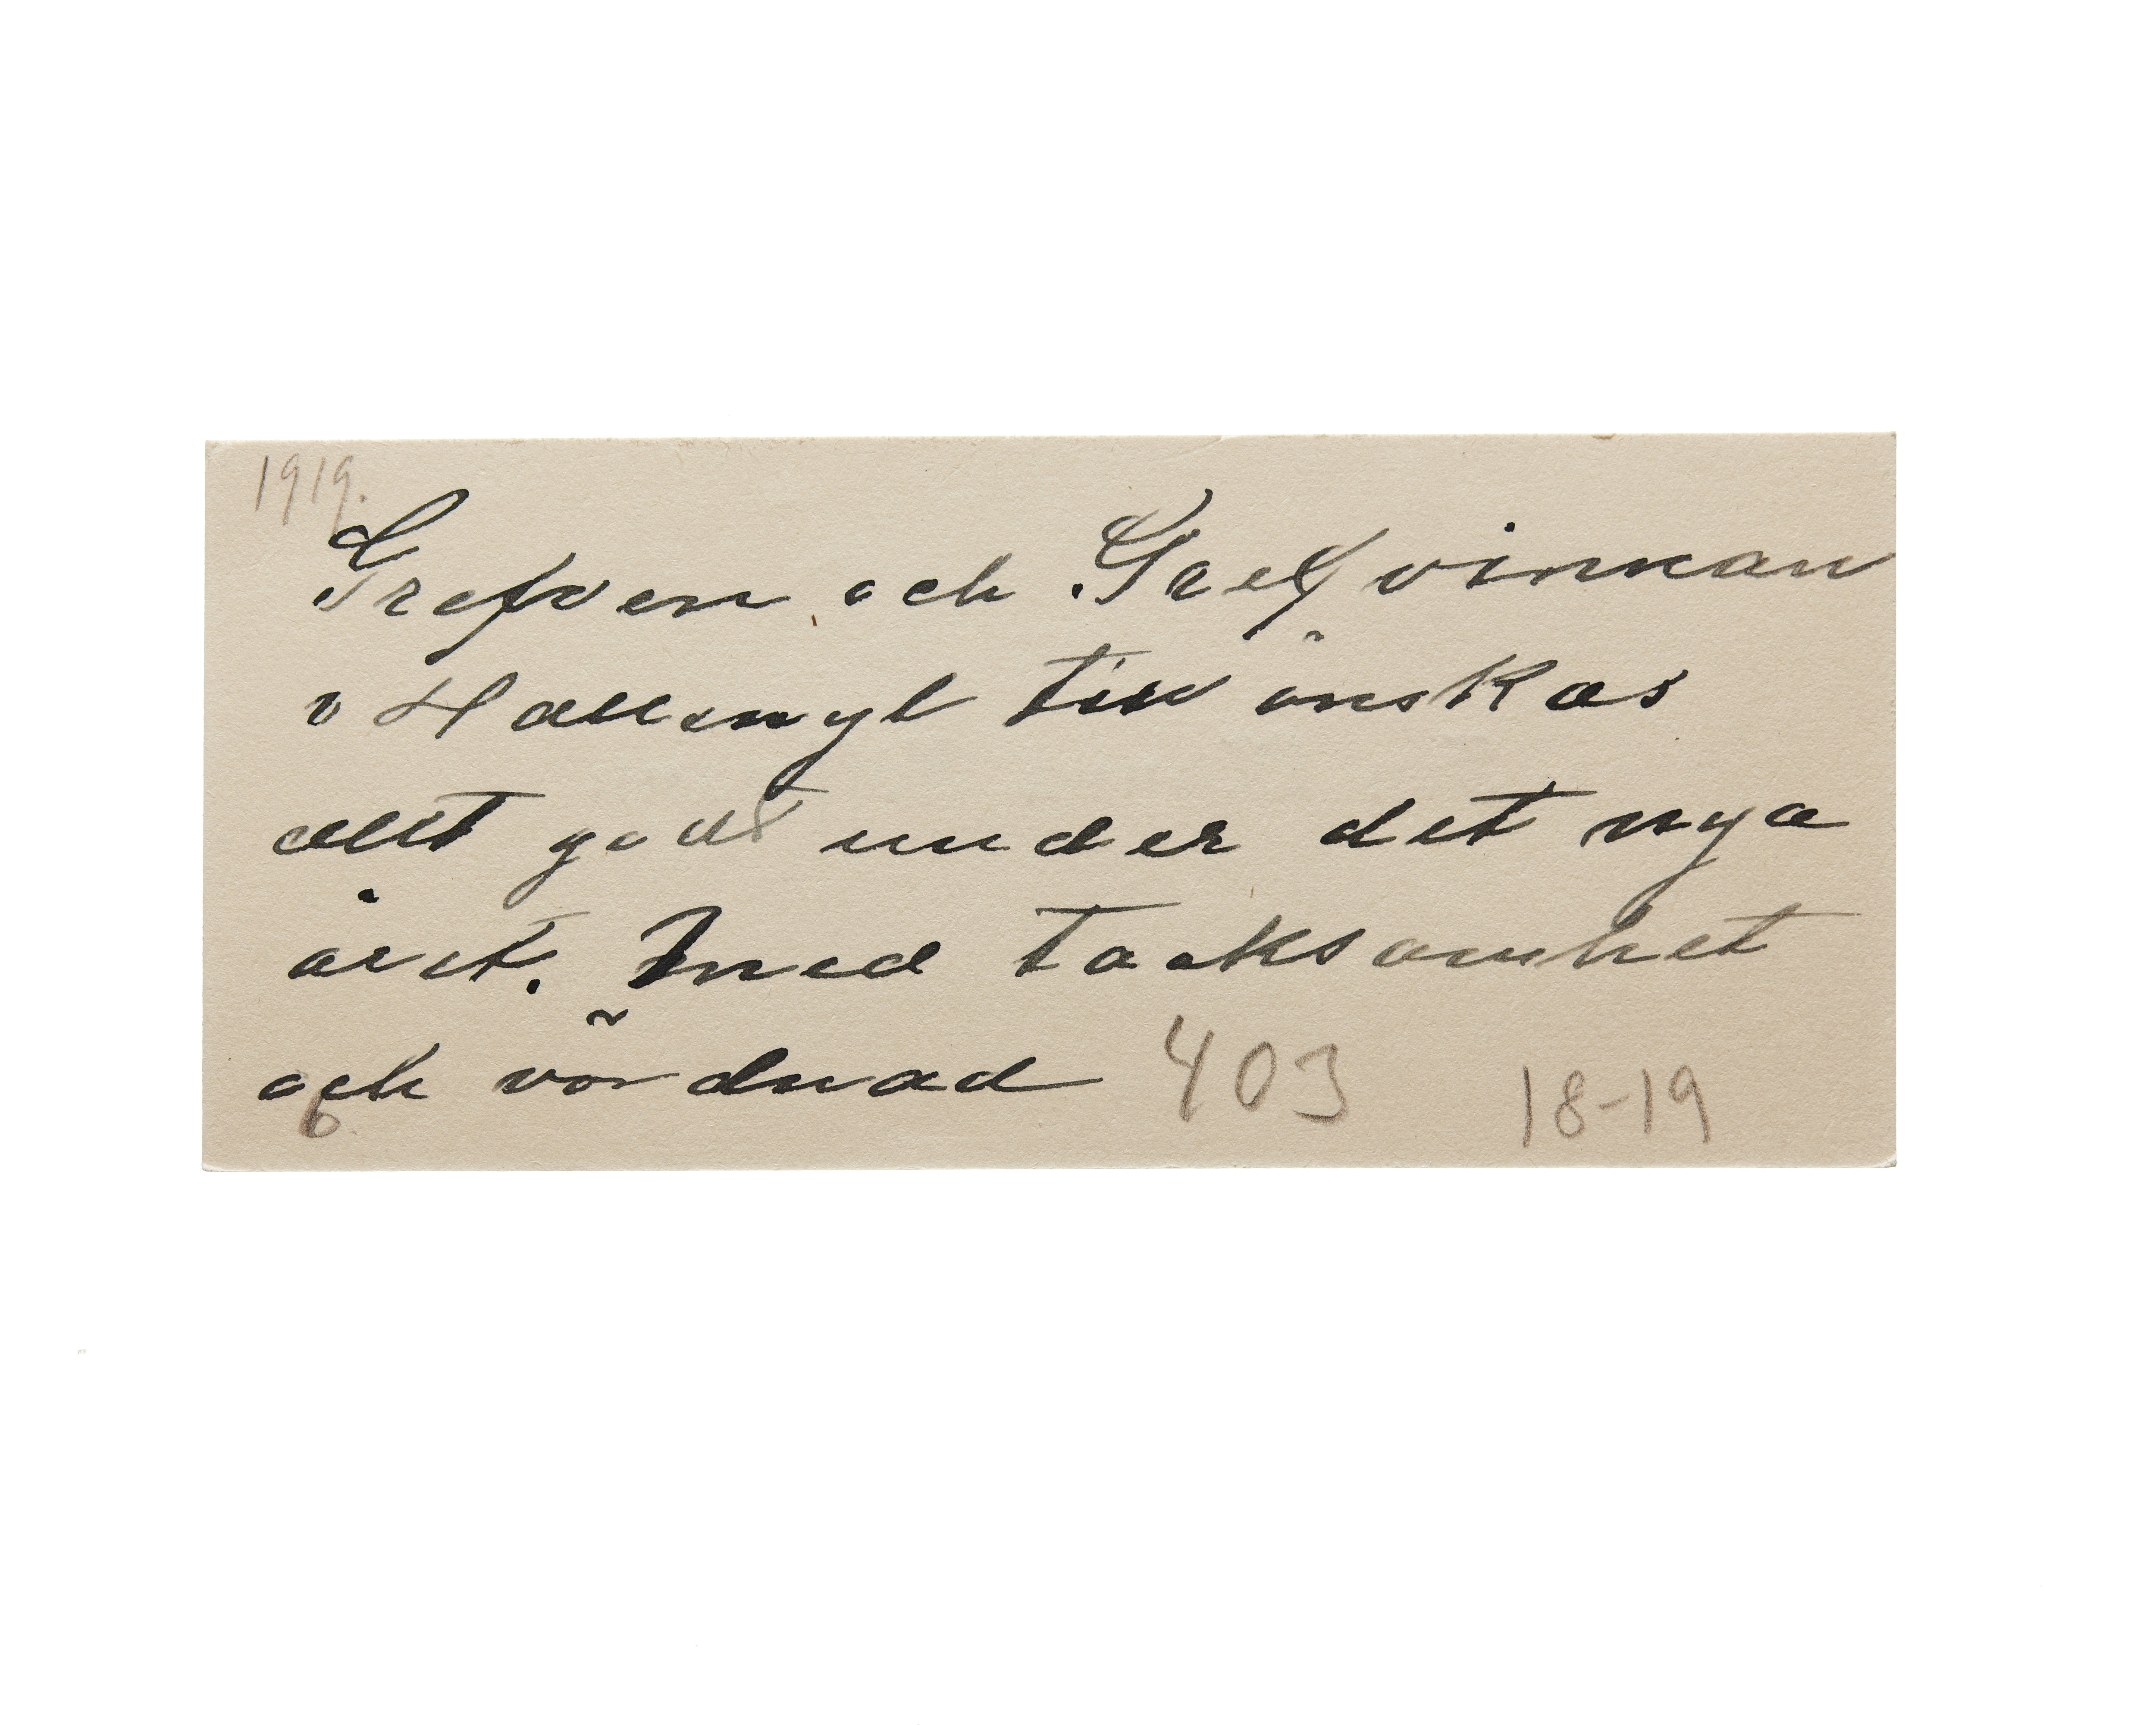 1919.
Grefven och Grefvinnan
v Hallwyl tillönskas
allt godt under det nya
året. Med tacksamhet
och vördnad 403 18-19
6